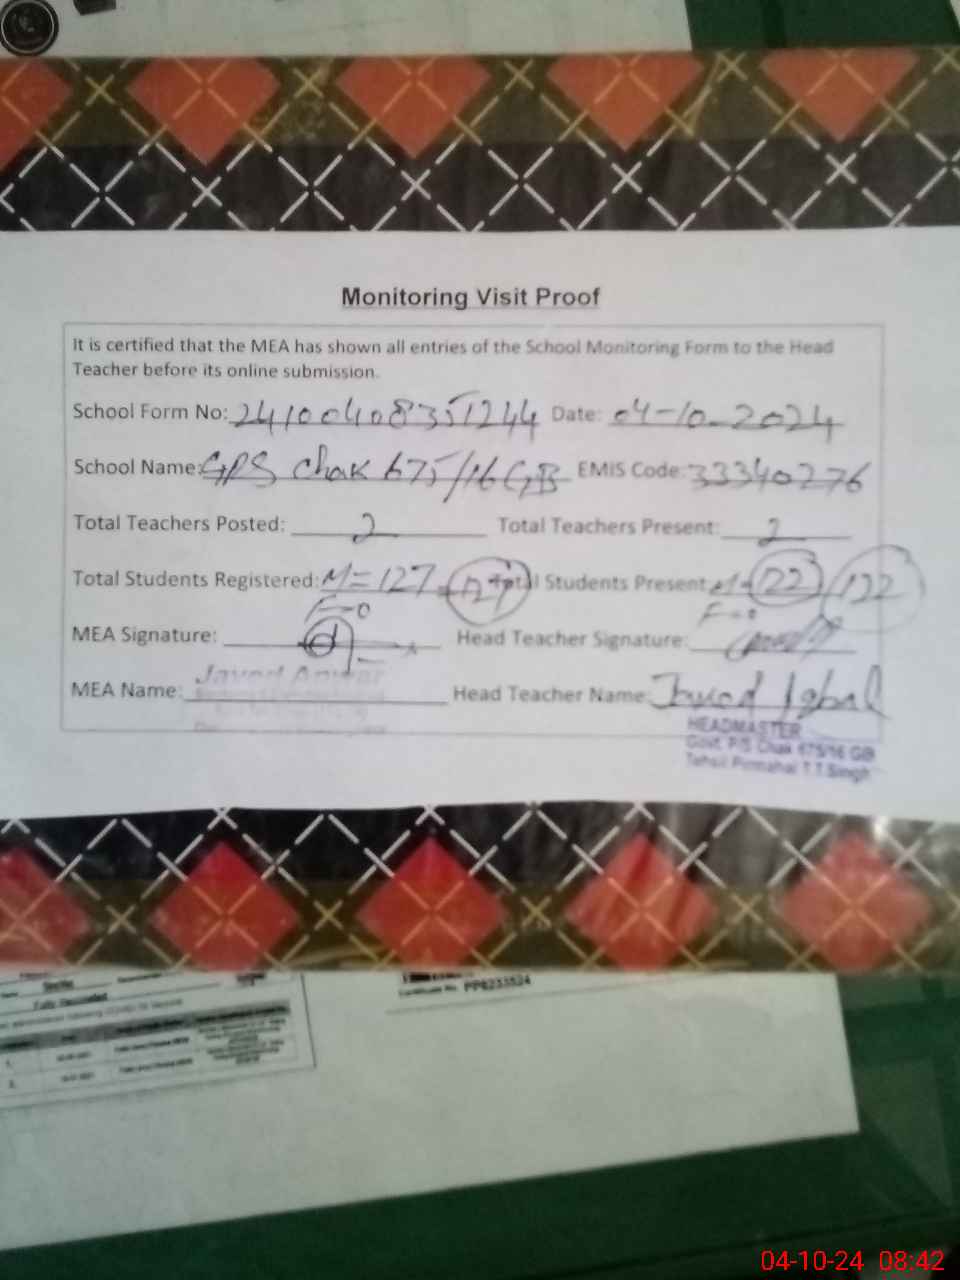 Monitoring Visit Proof
It is certified that the MEA has shown all entries of the School Monitoring Form to the Head
Teacher before its online submission.
School Form No: 24100408351244 Date: 04-10-2024
School Name: GPS Chak 675/16 GB EMIS Code: 33340276
Total Teachers Posted: 2 Total Teachers Present: 2
Total Students Registered: M=127 127 Total Students Present M= 122 122
F=0 F=0
MEA Signature: Head Teacher Signature:
Javed Anwar
MEA Name: Head Teacher Name: Javed Iqbal
HEADMASTER
Govt. P/S Chak 675/16 GB
Tehsil Pirmahal T.T.Singh
Certificate No. PP8233524
Fully Vaccinated
1.
2.
04-10-24 08:42